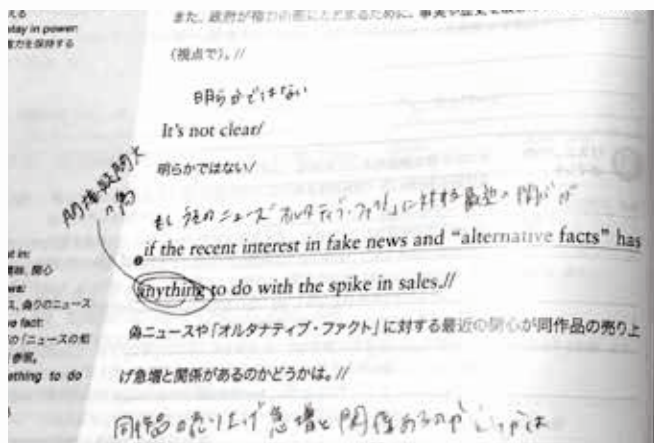 stay in power:
力を保持する
また、政府が権力の座にとどまるために、事実や歴史を
（視点で）。//
明らかではない
It's not clear/
明らかではない/
間接疑問文
の為
もし 偽のニュースや「オルタナティブ・ファクト」に対する最近の関心が
if the recent interest in fake news and “alternative facts” has
anything to do with the spike in sales.//
偽ニュースや「オルタナティブ・ファクト」に対する最近の関心が同作品の売り上
げ急増と関係があるのかどうかは。//
同作品の売り上げ急増と関係あるのかどうかは
t in:
興味、関心
ws:
ス、偽りのニュース
ve fact:
の「ニュースの知
参照。
ething to do